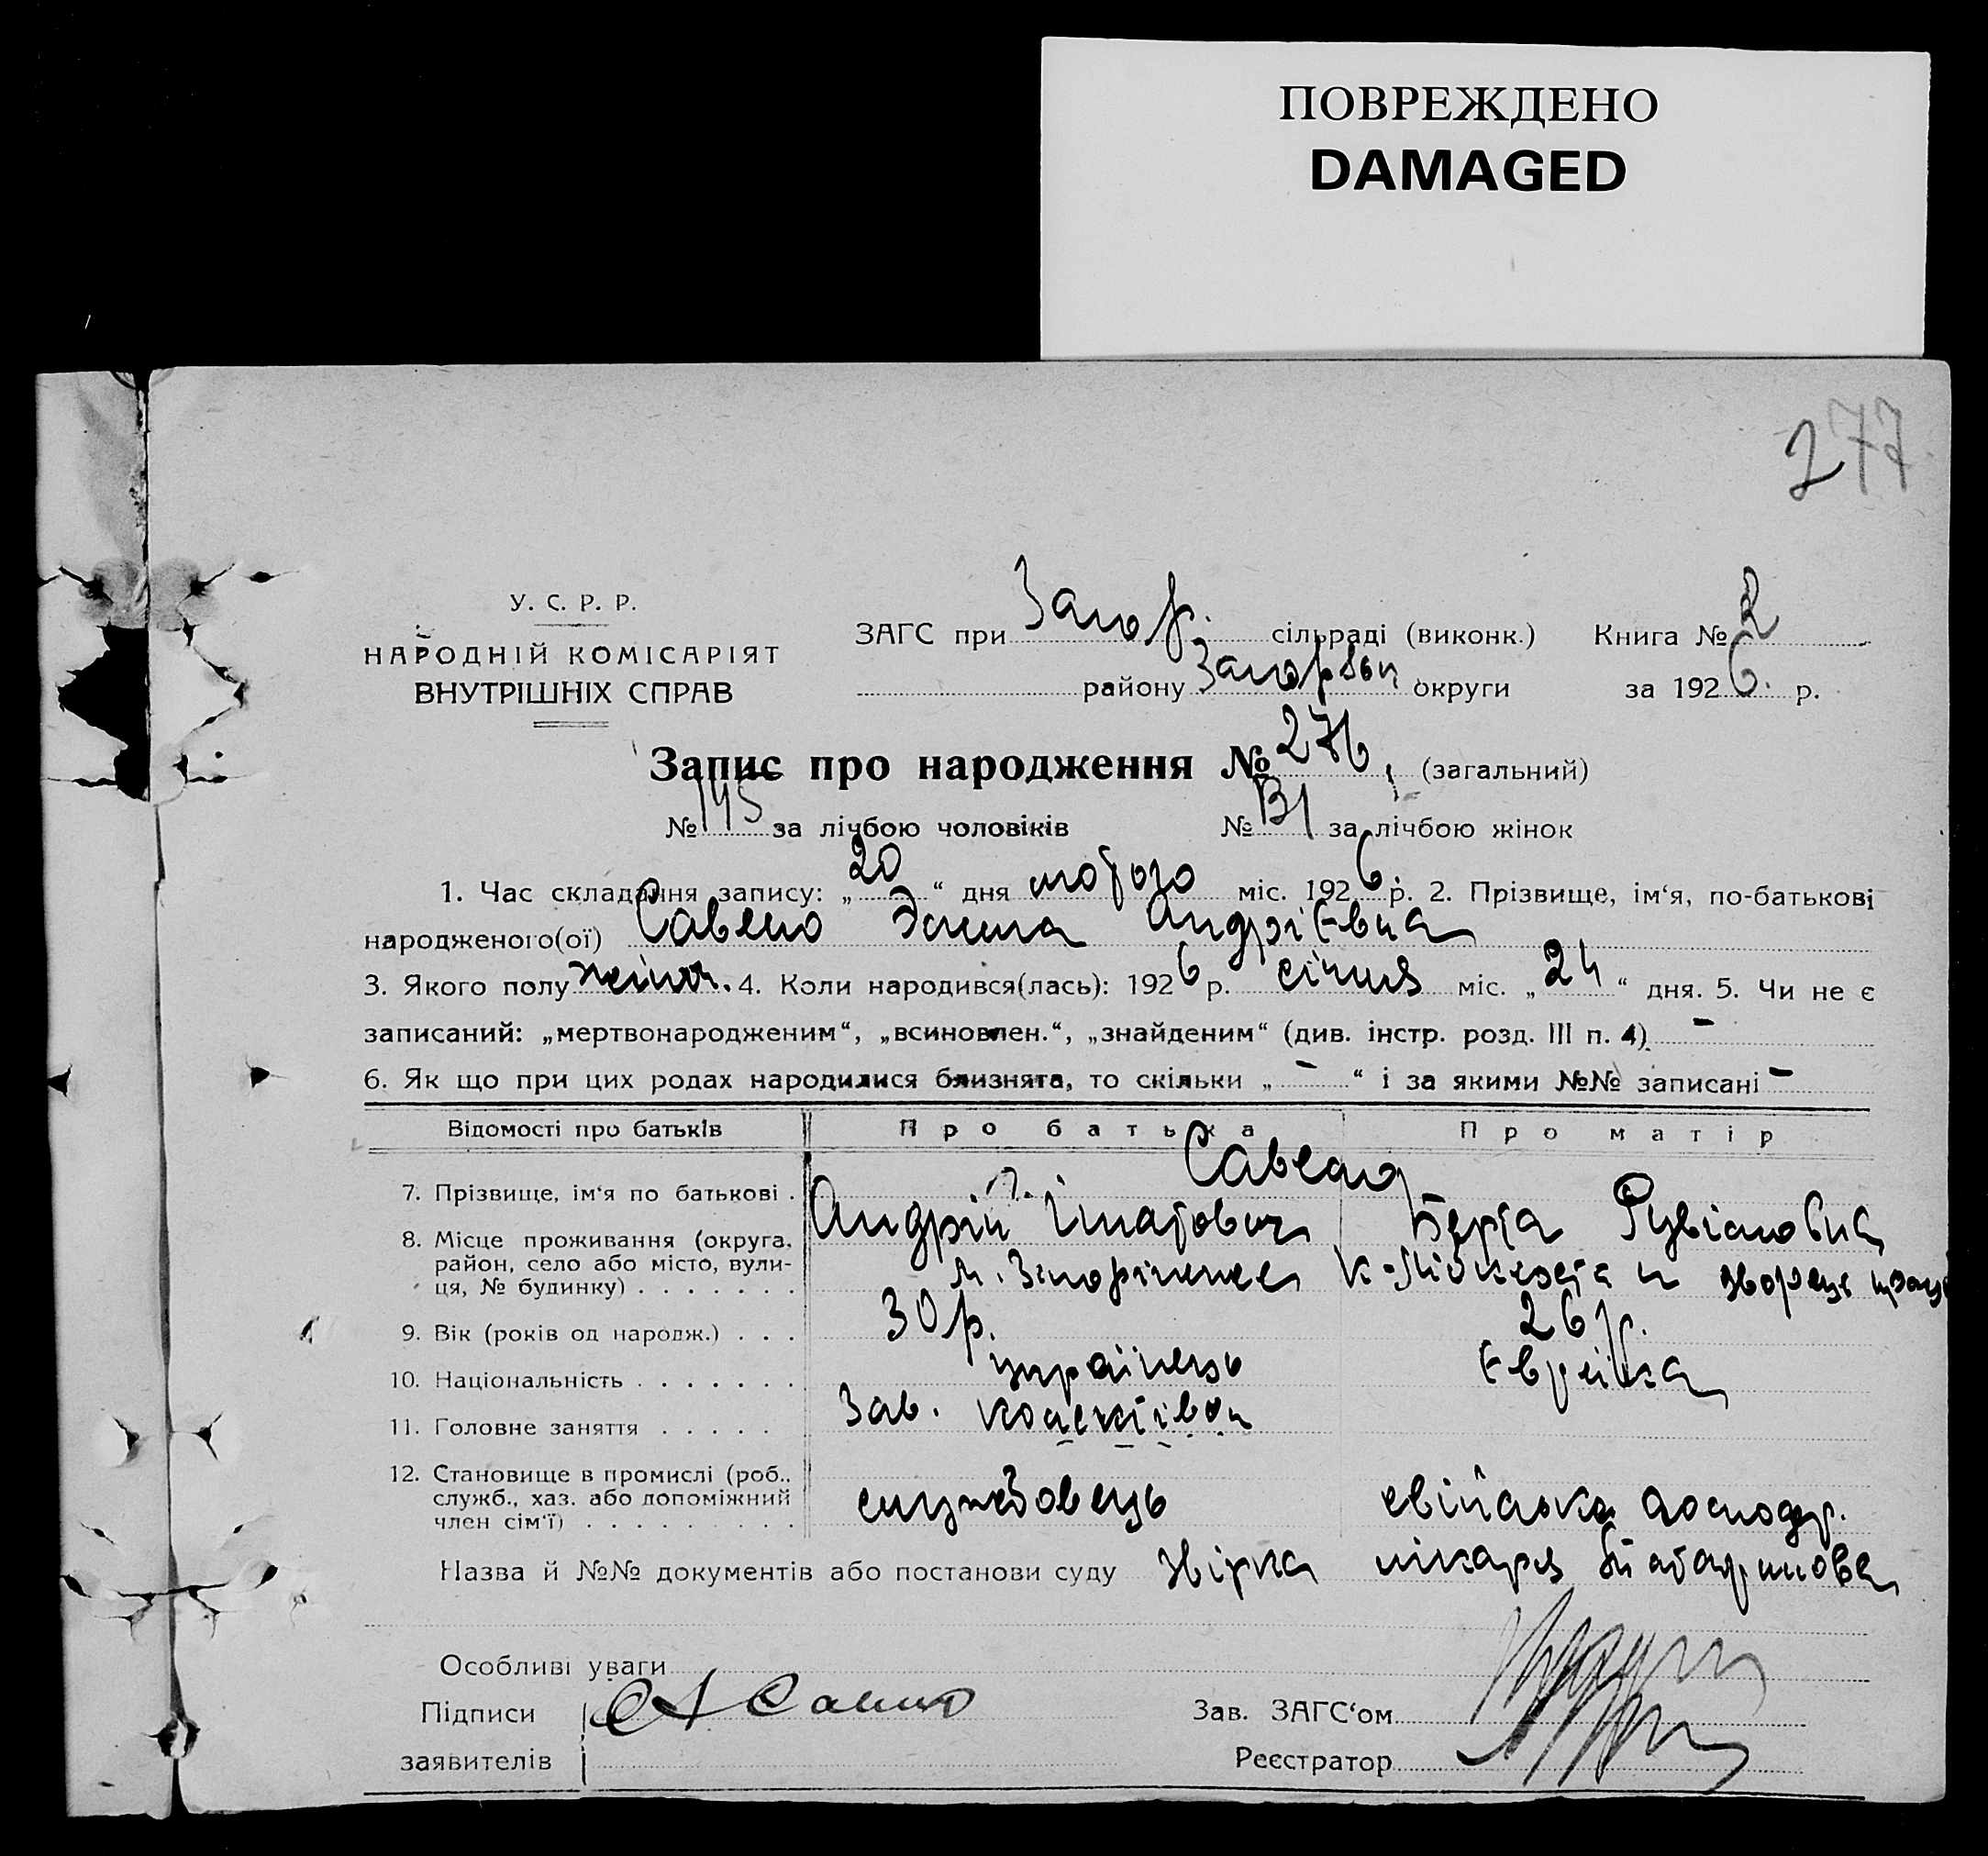 ПОВРЕЖДЕНО
DAMAGED
277
У. С. Р. Р.
НАРОДНІЙ КОМІСАРІЯТ
ВНУТРІШНІХ СПРАВ
ЗАГС при Запор. сільраді (виконк.) Книга № 2
району округи за 1926. р.
Запис про народження № 276, (загальний)
№ 145 за лічбою чоловіків № 131 за лічбою жінок
1. Час складання запису: „20“ дня лютого міс. 1926 р. 2. Прізвище, ім‘я, по-батькові
народженого(ої) Андріівна
3. Якого полу жіноч. 4. Коли народився(лась): 1926 р. січня міс. „24“ дня. 5. Чи не є
записаний: „мертвонародженим“, „всиновлен.“, „знайденим“ (див. інстр. розд. III п. 4) –
6. Як що при цих родах народилися близнята, то скільки „ – “ і за якими №№ записані –
Відомості про батьків Про батька Про матір
7. Прізвище, ім‘я по батькові .
Андрій Ігнатович Берта Рувімовна
8. Місце проживання (округа,
район, село або місто, вули-
ця, № будинку) . . . . . . .
м. Запоріжже
9. Вік (років од народж.) . . . 30 р. 26 р.
10. Національність . . . . . . . українець Єврейка
11. Головне заняття . . . . . Зав.
12. Становище в промислі (роб.,
служб., хаз. або допоміжний
член сім‘ї) . . . . . . . . .
службовець господар.
Назва й №№ документів або постанови суду лікаря
Особливі уваги
Підписи
заявителів
Зав. ЗАГС‘ом
Реєстратор